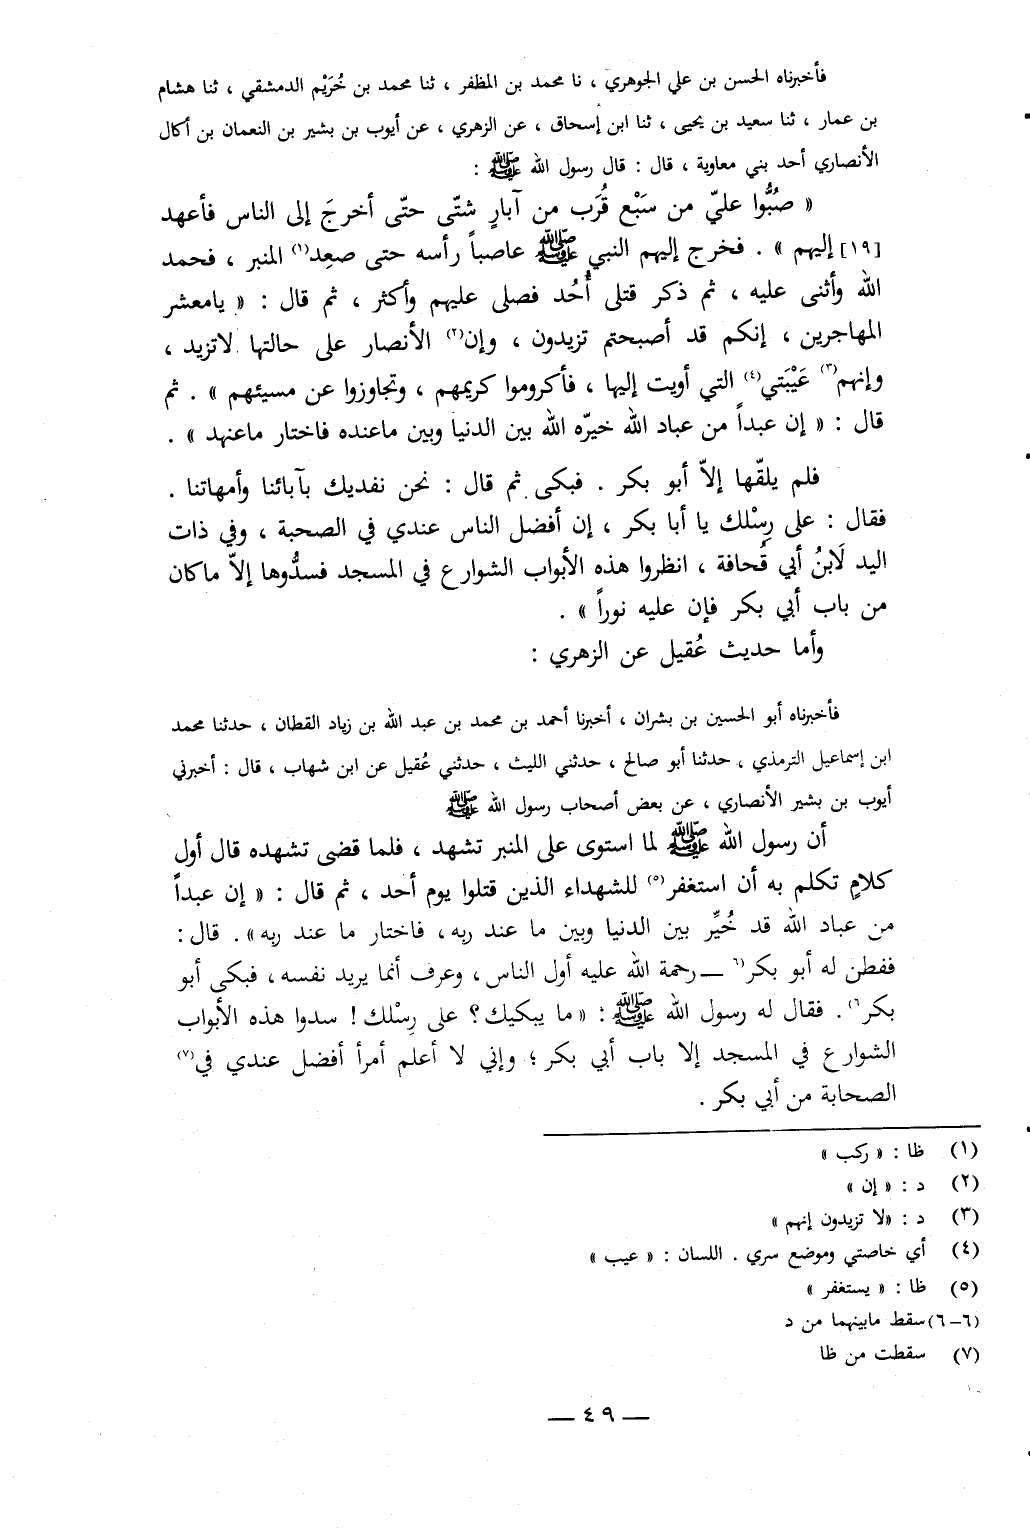 فأخبرناه الحسن بن علي الجوهري ، نا محمد بن المظفر ، ثنا محمد بن خُرَيْم الدمشقي ، ثنا هشام
بن عمار ، ثنا سعيد بن يحيى ، ثنا ابن إسحاق ، عن الزهري ، عن أيوب بن بشير بن النعمان بن أكال
الأنصاري أحد بني معاوية ، قال : قال رسول الله ﷺ :
« صُبُّوا عليّ من سَبْع قُرَب من آبارٍ شتّى حتّى أخرجَ إلى الناس فأعهد
[١٩] إليهم » . فخرج إليهم النبي ﷺ عاصباً رأسه حتى صعِد(١) المنبر ، فحمد
الله وأثنى عليه ، ثم ذكر قتلى أُحُد فصلى عليهم وأكثر ، ثم قال : « يامعشر
المهاجرين ، إنكم قد أصبحتم تزيدون ، وإن(٢) الأنصار على حالتها لاتزيد ،
وإنهم(٣) عَيْبَتي(٤) التي أويت إليها ، فأكروموا كريمهم ، وتجاوزوا عن مسيئهم » . ثم
قال : « إن عبداً من عباد الله خيرّه الله بين الدنيا وبين ماعنده فاختار ماعنهد » .
فلم يلقّها إلاّ أبو بكر . فبكى ثم قال : نحن نفديك بآبائنا وأمهاتنا .
فقال : على رِسْلك يا أبا بكر ، إن أفضل الناس عندي في الصحبة ، وفي ذات
اليد لَابنُ أبي قُحافة ، انظروا هذه الأبواب الشوارع في المسجد فسدُّوها إلاّ ماكان
من باب أبي بكر فإن عليه نوراً » .
وأما حديث عُقيل عن الزهري :
فأخبرناه أبو الحسين بن بشران ، أخبرنا أحمد بن محمد بن عبد الله بن زياد القطان ، حدثنا محمد
ابن إسماعيل الترمذي ، حدثنا أبو صالح ، حدثني الليث ، حدثني عُقيل عن ابن شهاب ، قال : أخبرني
أيوب بن بشير الأنصاري ، عن بعض أصحاب رسول الله ﷺ
أن رسول الله ﷺ لما استوى على المنبر تشهد ، فلما قضى تشهده قال أول
كلامٍ تكلم به أن استغفر(٥) للشهداء الذين قتلوا يوم أحد ، ثم قال : « إن عبداً
من عباد الله قد خُيِّر بين الدنيا وبين ما عند ربه، فاختار ما عند ربه». قال:
ففطن له أبو بكر(٦ ــ رحمة الله عليه أول الناس، وعرف أنما يريد نفسه، فبكى أبو
بكر٦). فقال له رسول الله ﷺ : «ما يبكيك؟ على رِسْلك! سدوا هذه الأبواب
الشوارع في المسجد إلا باب أبي بكر؛ وإني لا أعلم أمرأ أفضل عندي في(٧)
الصحابة من أبي بكر .
(١) ظا : « ركب »
(٢) د : « إن »
(٣) د : «لا تزيدون إنهم »
(٤) أي خاصتي وموضع سري . اللسان : « عيب »
(٥) ظا : « يستغفر »
(٦-٦) سقط مابينهما من د
(٧) سقطت من ظا
— ٤٩ —